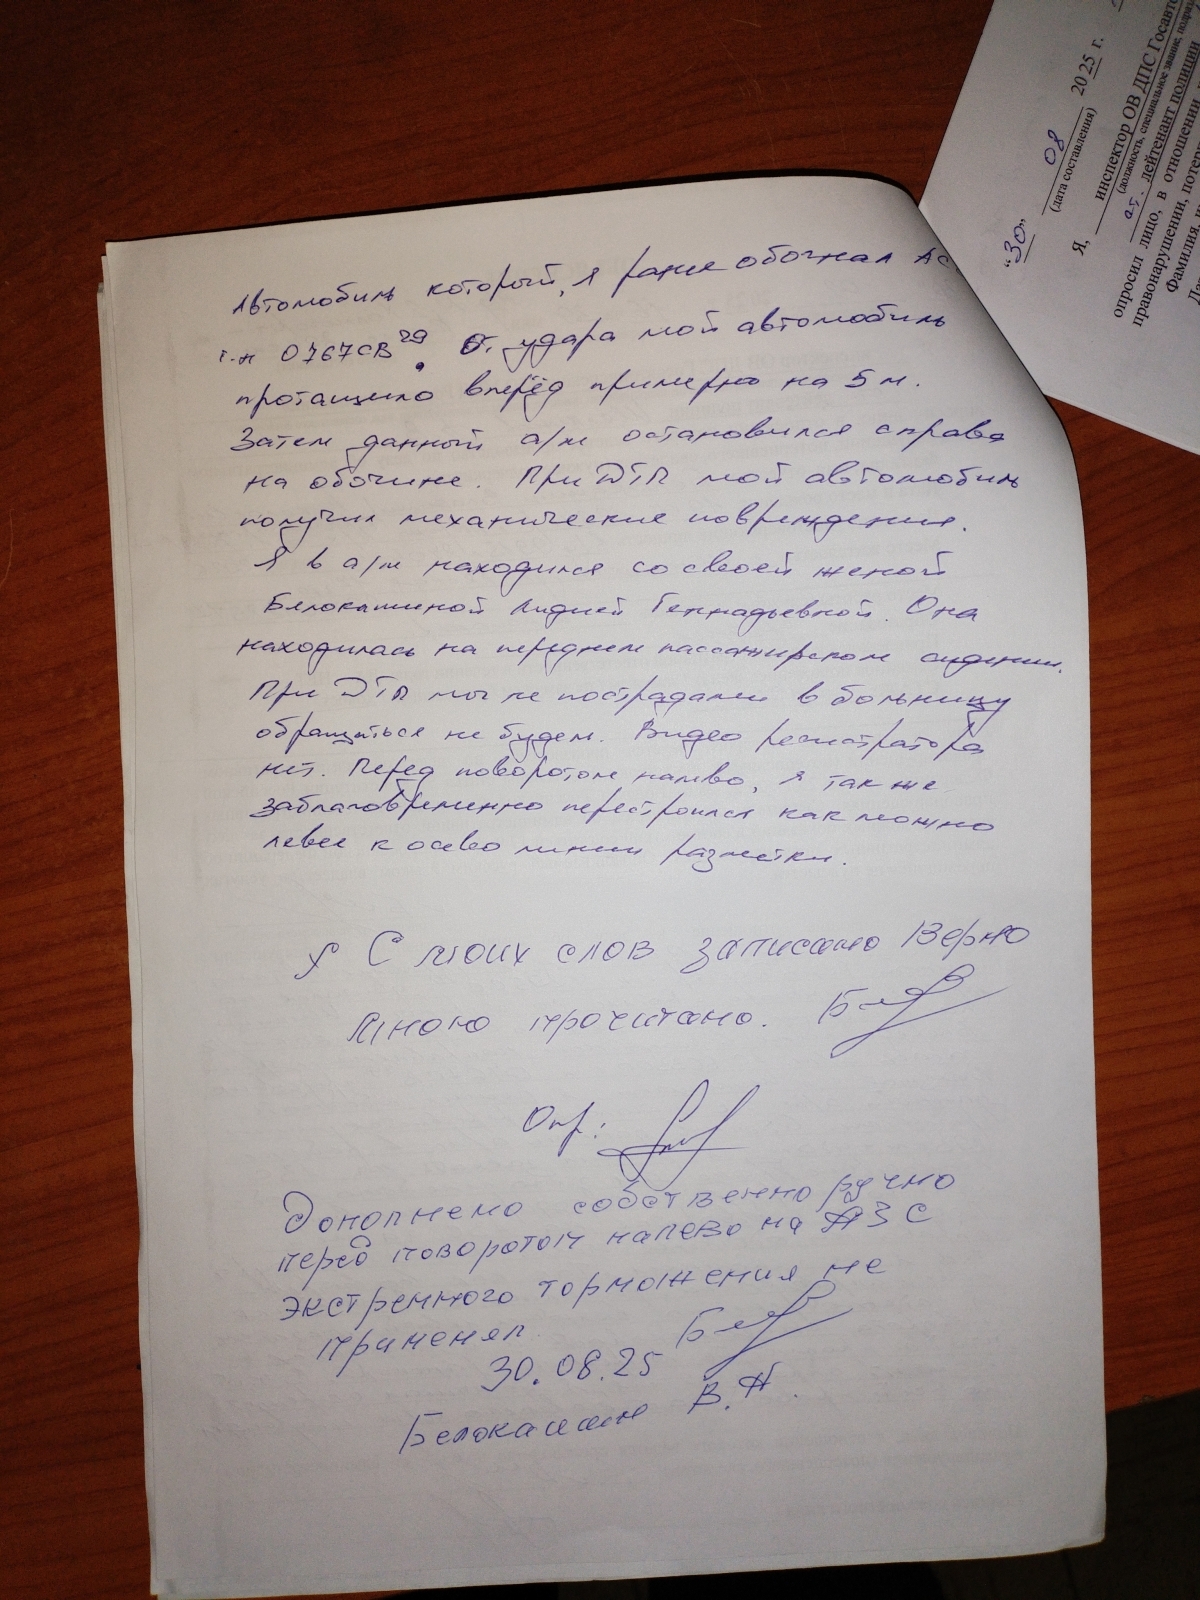 Автомобиль который, я ранее обогнал
г.н О767СВ29. От удара мой автомобиль
протащило вперёд примерно на 5 м.
Затем данный а/м остановился справа
на обочине. При ДТП мой автомобиль
получил механические повреждения.
Я в а/м находился со своей женой
Белокашиной Лидией Геннадьевной. Она
находилась на переднем пассажирском сидении.
При ДТП мы не пострадали в больницу
обращаться не будем. Видео регистратора
нет. Перед поворотом налево, я так же
заблаговременно перестроился как можно
левее к осево линии разметки.
С моих слов записано Верно
Мною прочитано.
Опр:
Дополнено собственно ручно
перед поворотом налево на АЗС
экстренного торможения не
применял
30.08.25
Белокашин В.А.
"30" 08 2025 г.
(дата составления)
Я, инспектор ОВ ДПС Госавто
(должность, специальное звание, подраз
лейтенант полиции
опросил лицо, в отношении
правонарушении, потерп
Фамилия,